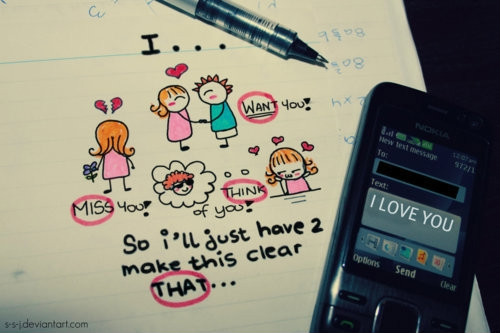 I...
WANT you!
MISS you!
THINK
of you!
So i'll just have 2
make this clear
THAT...
NOKIA
New text message
972/1
To:
Text:
I LOVE YOU
Options Send Clear
s-s-j.deviantart.com